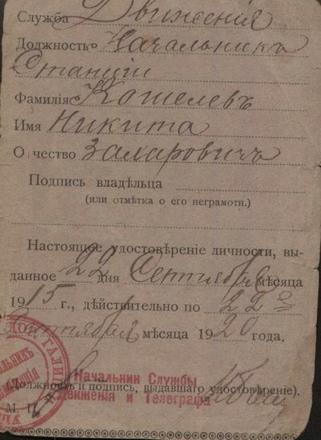 Служба Движенія
Должность Начальникъ
Станціи
Фамилія Кошелевъ
Имя Никита
Отчество Захаровичъ
Подпись владѣльца
(или отмѣтка о его неграмотн.)
Настоящее удостовѣреніе личности, вы-
данное 22 дня Сентября мѣсяца
1915 г., дѣйствительно по 22
Сентября мѣсяца 1920 года.
(Должность и подпись, выдавшаго удостовѣреніе).
Начальник Службы
Движения и Телеграфа
М. П.